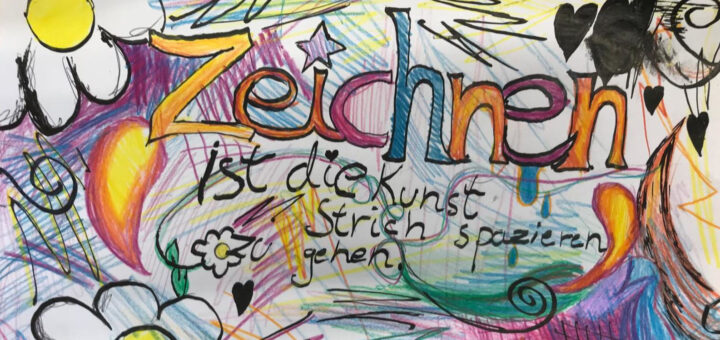 Zeichnen
ist die Kunst
Strich spazieren
zu gehen.